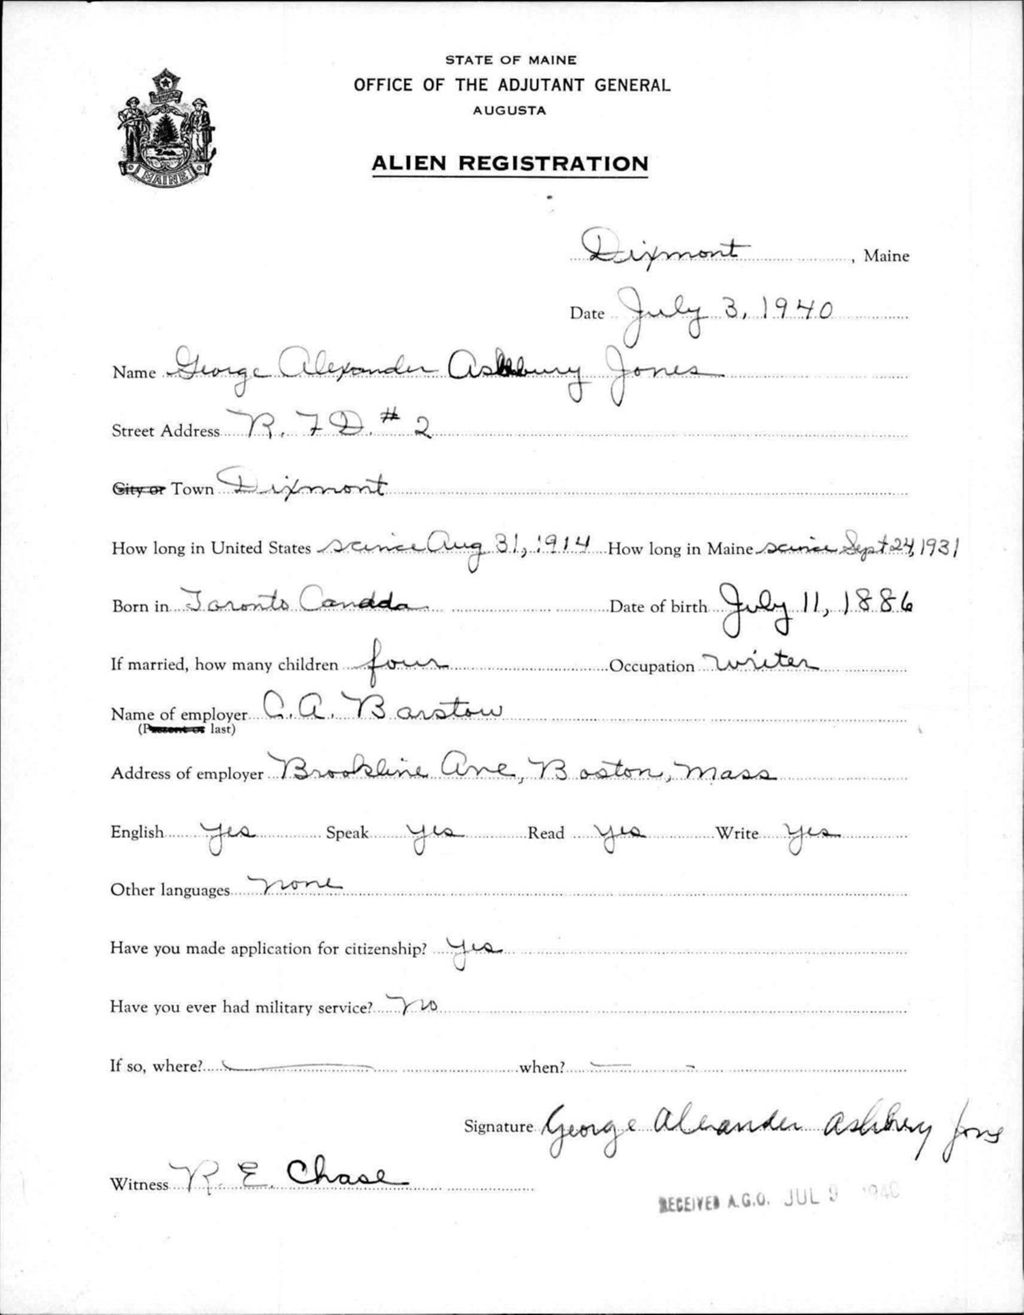 STATE OF MAINE
OFFICE OF THE ADJUTANT GENERAL
AUGUSTA
ALIEN REGISTRATION
MAINE
Dixmont, Maine
Date July 3, 1940
Name George Alexander Ashbury Jones
Street Address R. F D. # 2
City or Town Dixmont
How long in United States scince Aug 31, 1914 How long in Maine scince Sept 24, 1931
Born in Toronto Canada Date of birth July 11, 1886
If married, how many children four Occupation writer
Name of employer C. A. Barstow
(Present or last)
Address of employer Brookline Ave, Boston, Mass
English Yes Speak Yes Read Yes Write Yes
Other languages none
Have you made application for citizenship? Yes
Have you ever had military service? No
If so, where? when?
Signature George Alexander Ashbury Jones
Witness R. E. Chase
RECEIVED A.G.O. JUL 9 1940